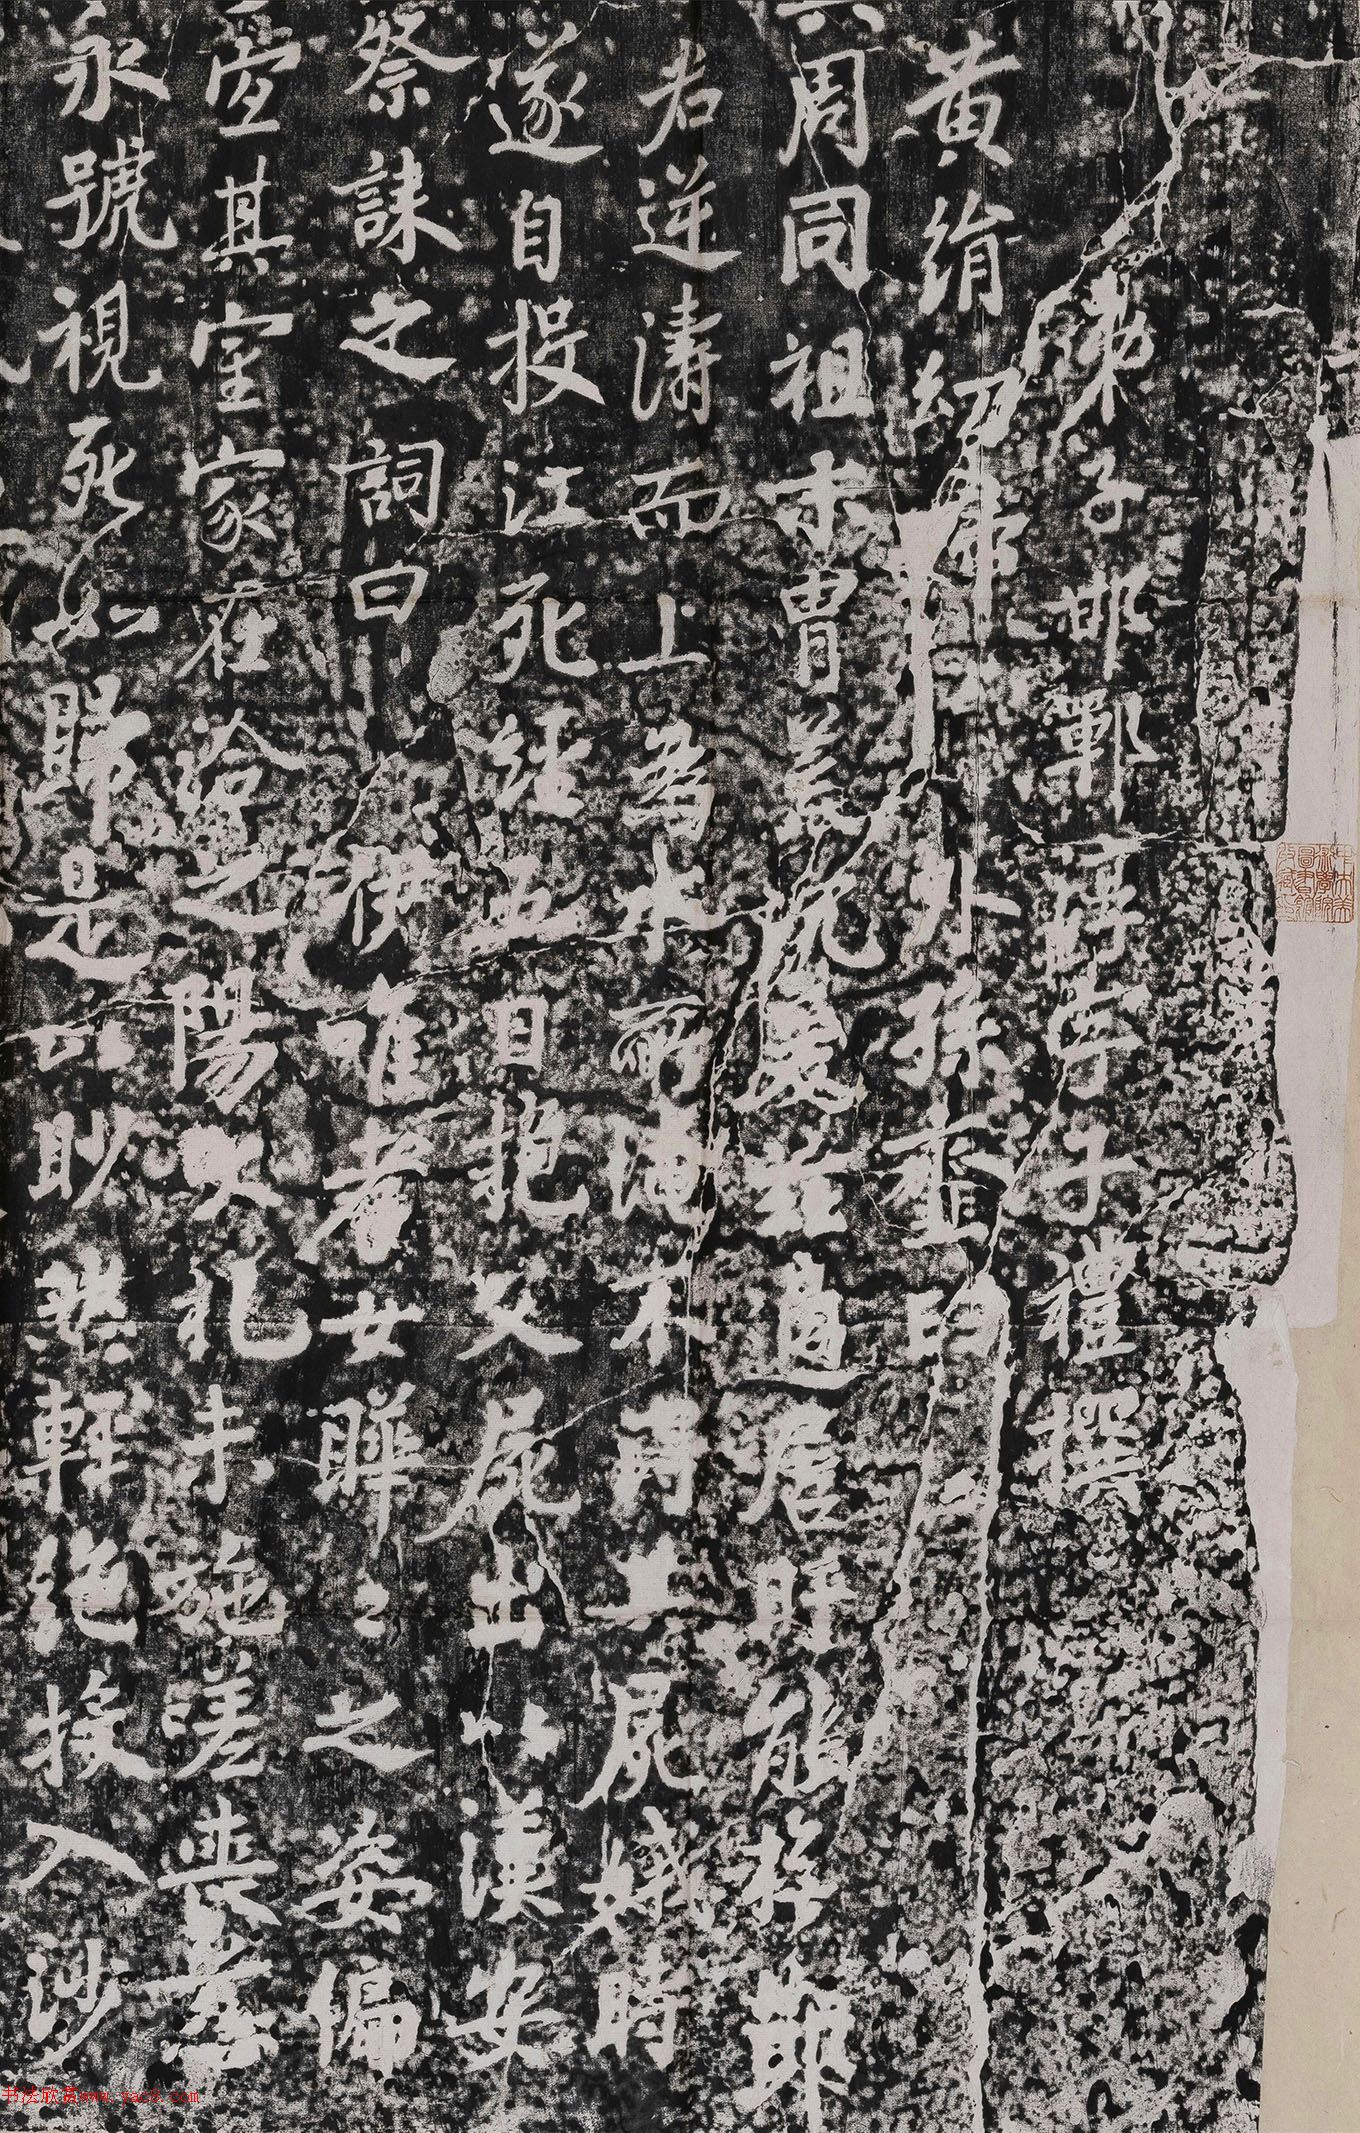 弟子邯鄲淳字子禮撰
黃絹幼婦外孫齏臼
周同祖末胄荒沉爰茲適居盱能撫節
君逆濤而上為水所淹不得其屍娥時
遂自投江死經五日抱父屍出以漢安
祭誄之詞曰伊唯孝女曄〻之姿偏
宜其室家在洽之陽大礼未施嗟喪慈
永號視死如歸是以眇然輕絕投入沙
书法欣赏www.yac8.com